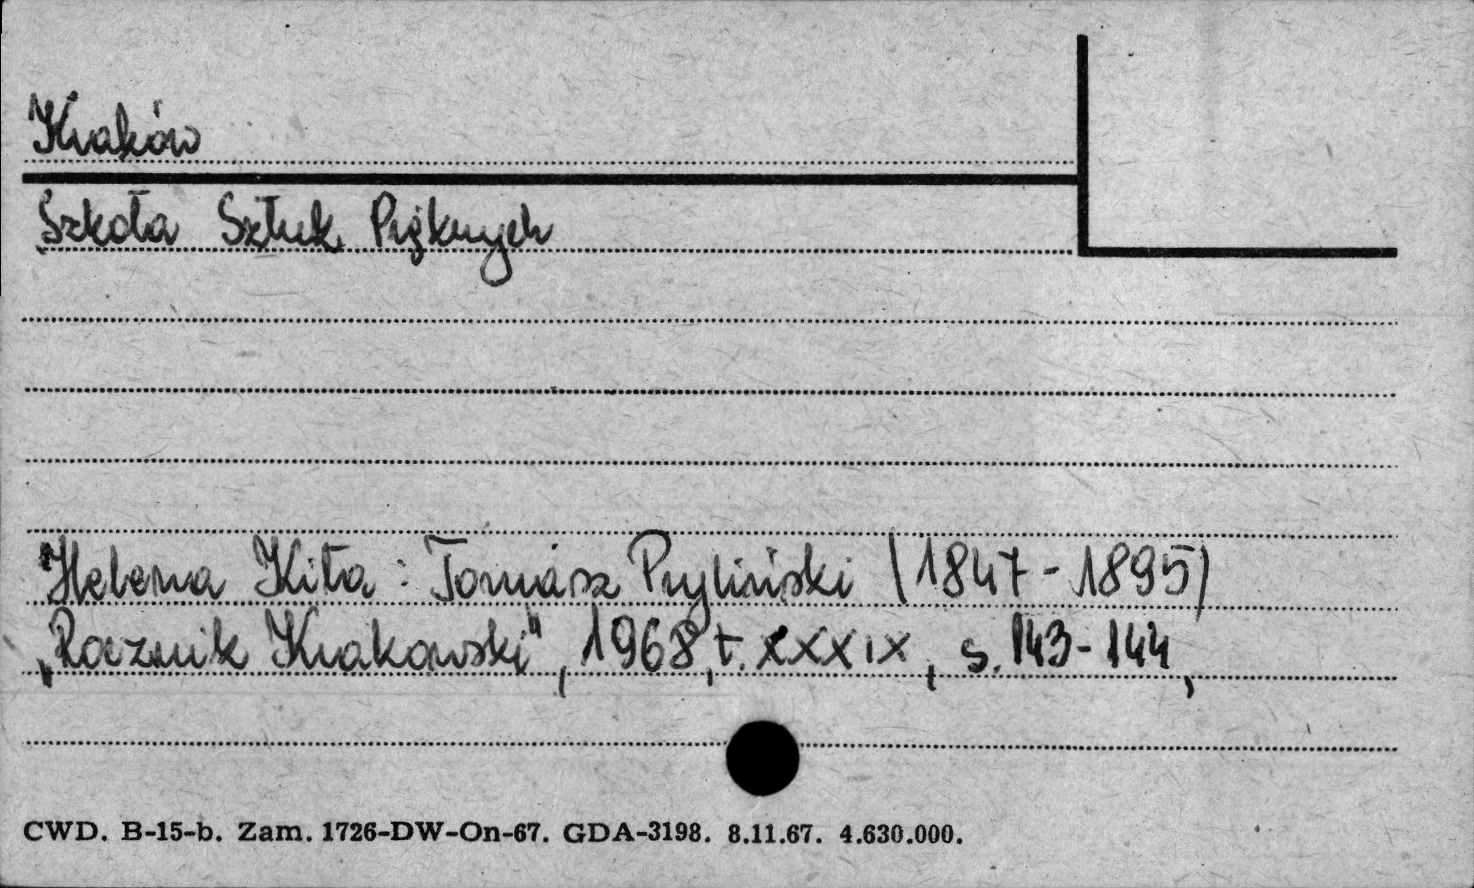 Kraków
Szkoła Sztuk Pięknych
Helena Kita: Tomasz Pryliński (1847-1895)
„Rocznik Krakowski", 1968, t. XXXIX, s. 143-144,
CWD. B-15-b. Zam. 1726-DW-On-67. GDA-3198. 8.11.67. 4.630.000.